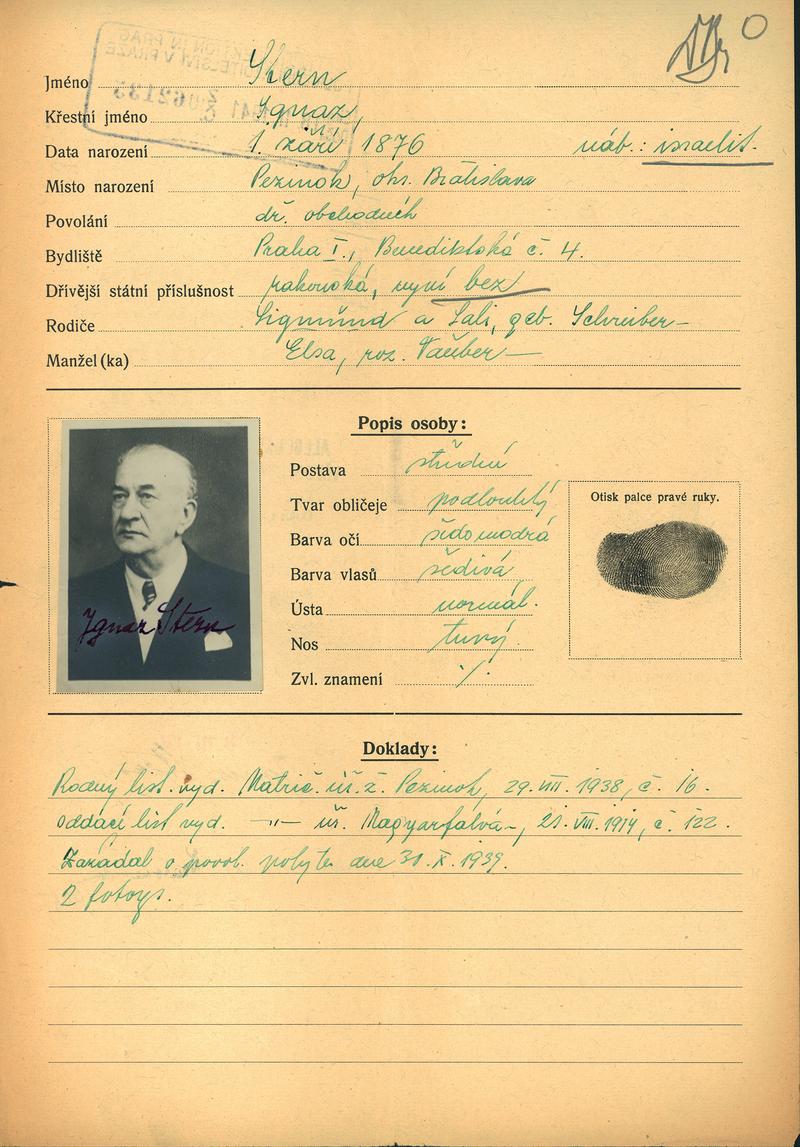 Jméno Stern
Křestní jméno Ignaz
Data narození 1. září 1876 náb.: israelit.
Místo narození Pezinok, okr. Bratislava
Povolání obchodních
Bydliště Praha I., Benediktská č. 4.
Dřívější státní příslušnost rakouská, nyní bez
Rodiče Sigmund a Sali, geb. Schreiber
Manžel (ka) Elsa, roz. Tauber
Popis osoby:
Postava střední
Tvar obličeje podlouhlý
Barva očí šedomodrá
Barva vlasů šedivá
Ústa normál.
Nos
Zvl. znamení ./.
Otisk palce pravé ruky.
Ignaz Stern
Doklady:
Rodný list vyd. Matrič. úř. ž. Pezinok, 29. VIII. 1938, č. 16.
oddací list vyd. -"- úř. Magyarfalva, 21. VIII. 1914, č. 122.
Zažádal o povol. pobytu dne 30. X. 1939.
2 fotogr.